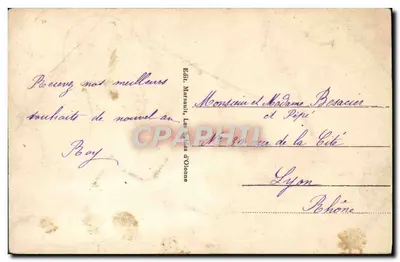 Recevez nos meilleurs
souhaits de nouvel an
Roy
Edit. Marsault, Les Sables d'Olonne
Monsieur et Madame Besacier
et Pépé
rue de la Cité
Lyon
Rhône
CPAPHIL